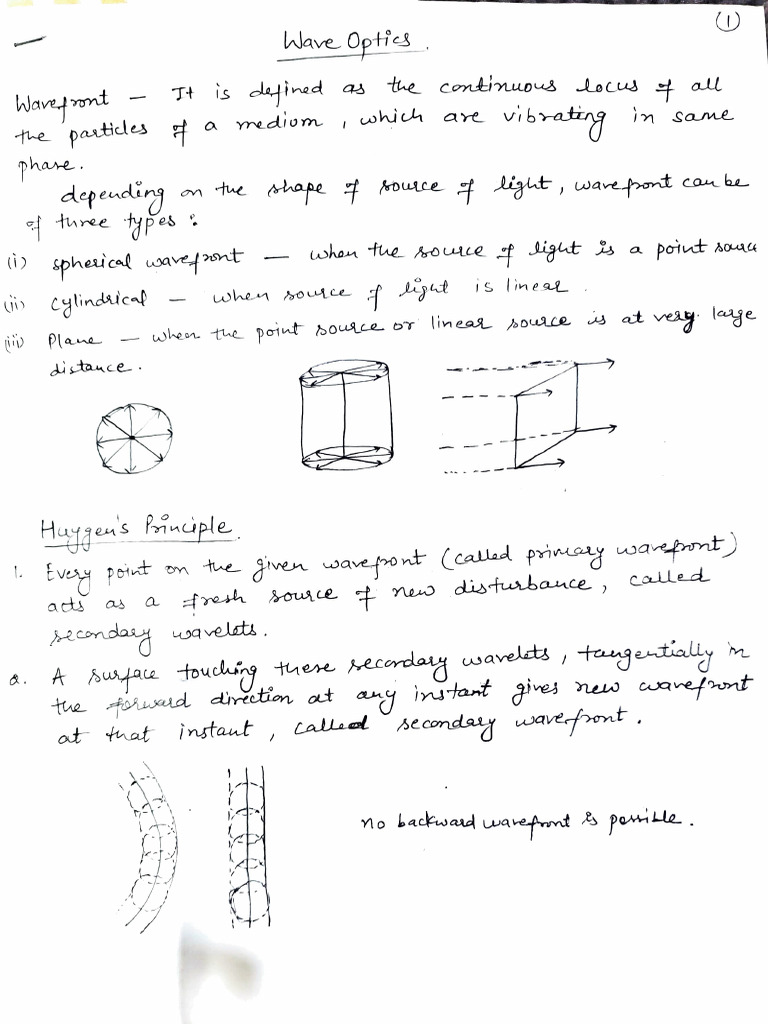 1
Wave Optics.
Wavefront – It is defined as the continuous locus of all
the particles of a medium, which are vibrating in same
phase.
depending on the shape of source of light, wavefront can be
of three types :
(i) spherical wavefront – when the source of light is a point source
(ii) cylindrical – when source of light is linear.
(iii) Plane – when the point source or linear source is at very large
distance.
Huygen's Principle.
1. Every point on the given wavefront (called primary wavefront)
acts as a fresh source of new disturbance, called
secondary wavelets.
2. A surface touching these secondary wavelets, tangentially in
the forward direction at any instant gives new wavefront
at that instant, called secondary wavefront.
no backward wavefront is possible.